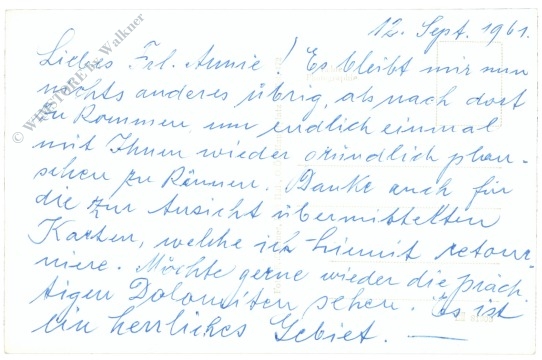 12. Sept. 1961.
Liebes Frl. Annie! Es bleibt mir nun
nichts anderes übrig, als nach dort
zu kommen, um endlich einmal
mit Ihnen wieder gründlich plau-
schen zu können. Danke auch für
die zur Ansicht übermittelten
Karten, welche ich hiemit retour-
niere. Möchte gerne wieder die präch-
tigen Dolomiten sehen. Es ist
ein herrliches Gebiet. —
by Walkner